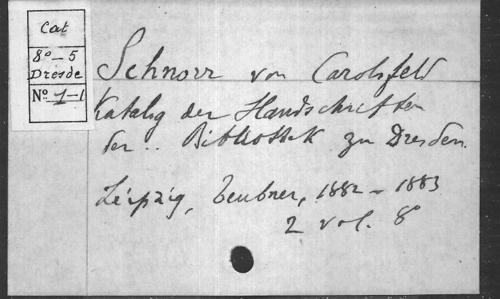 Cat
8º — 5
Dresde
Nº 1-1
Schnorr von Carolsfeld
Katalog der Handschriften
der .. Bibliothek zu Dresden.
Leipzig, Teubner, 1882 - 1883
2 vol. 8º